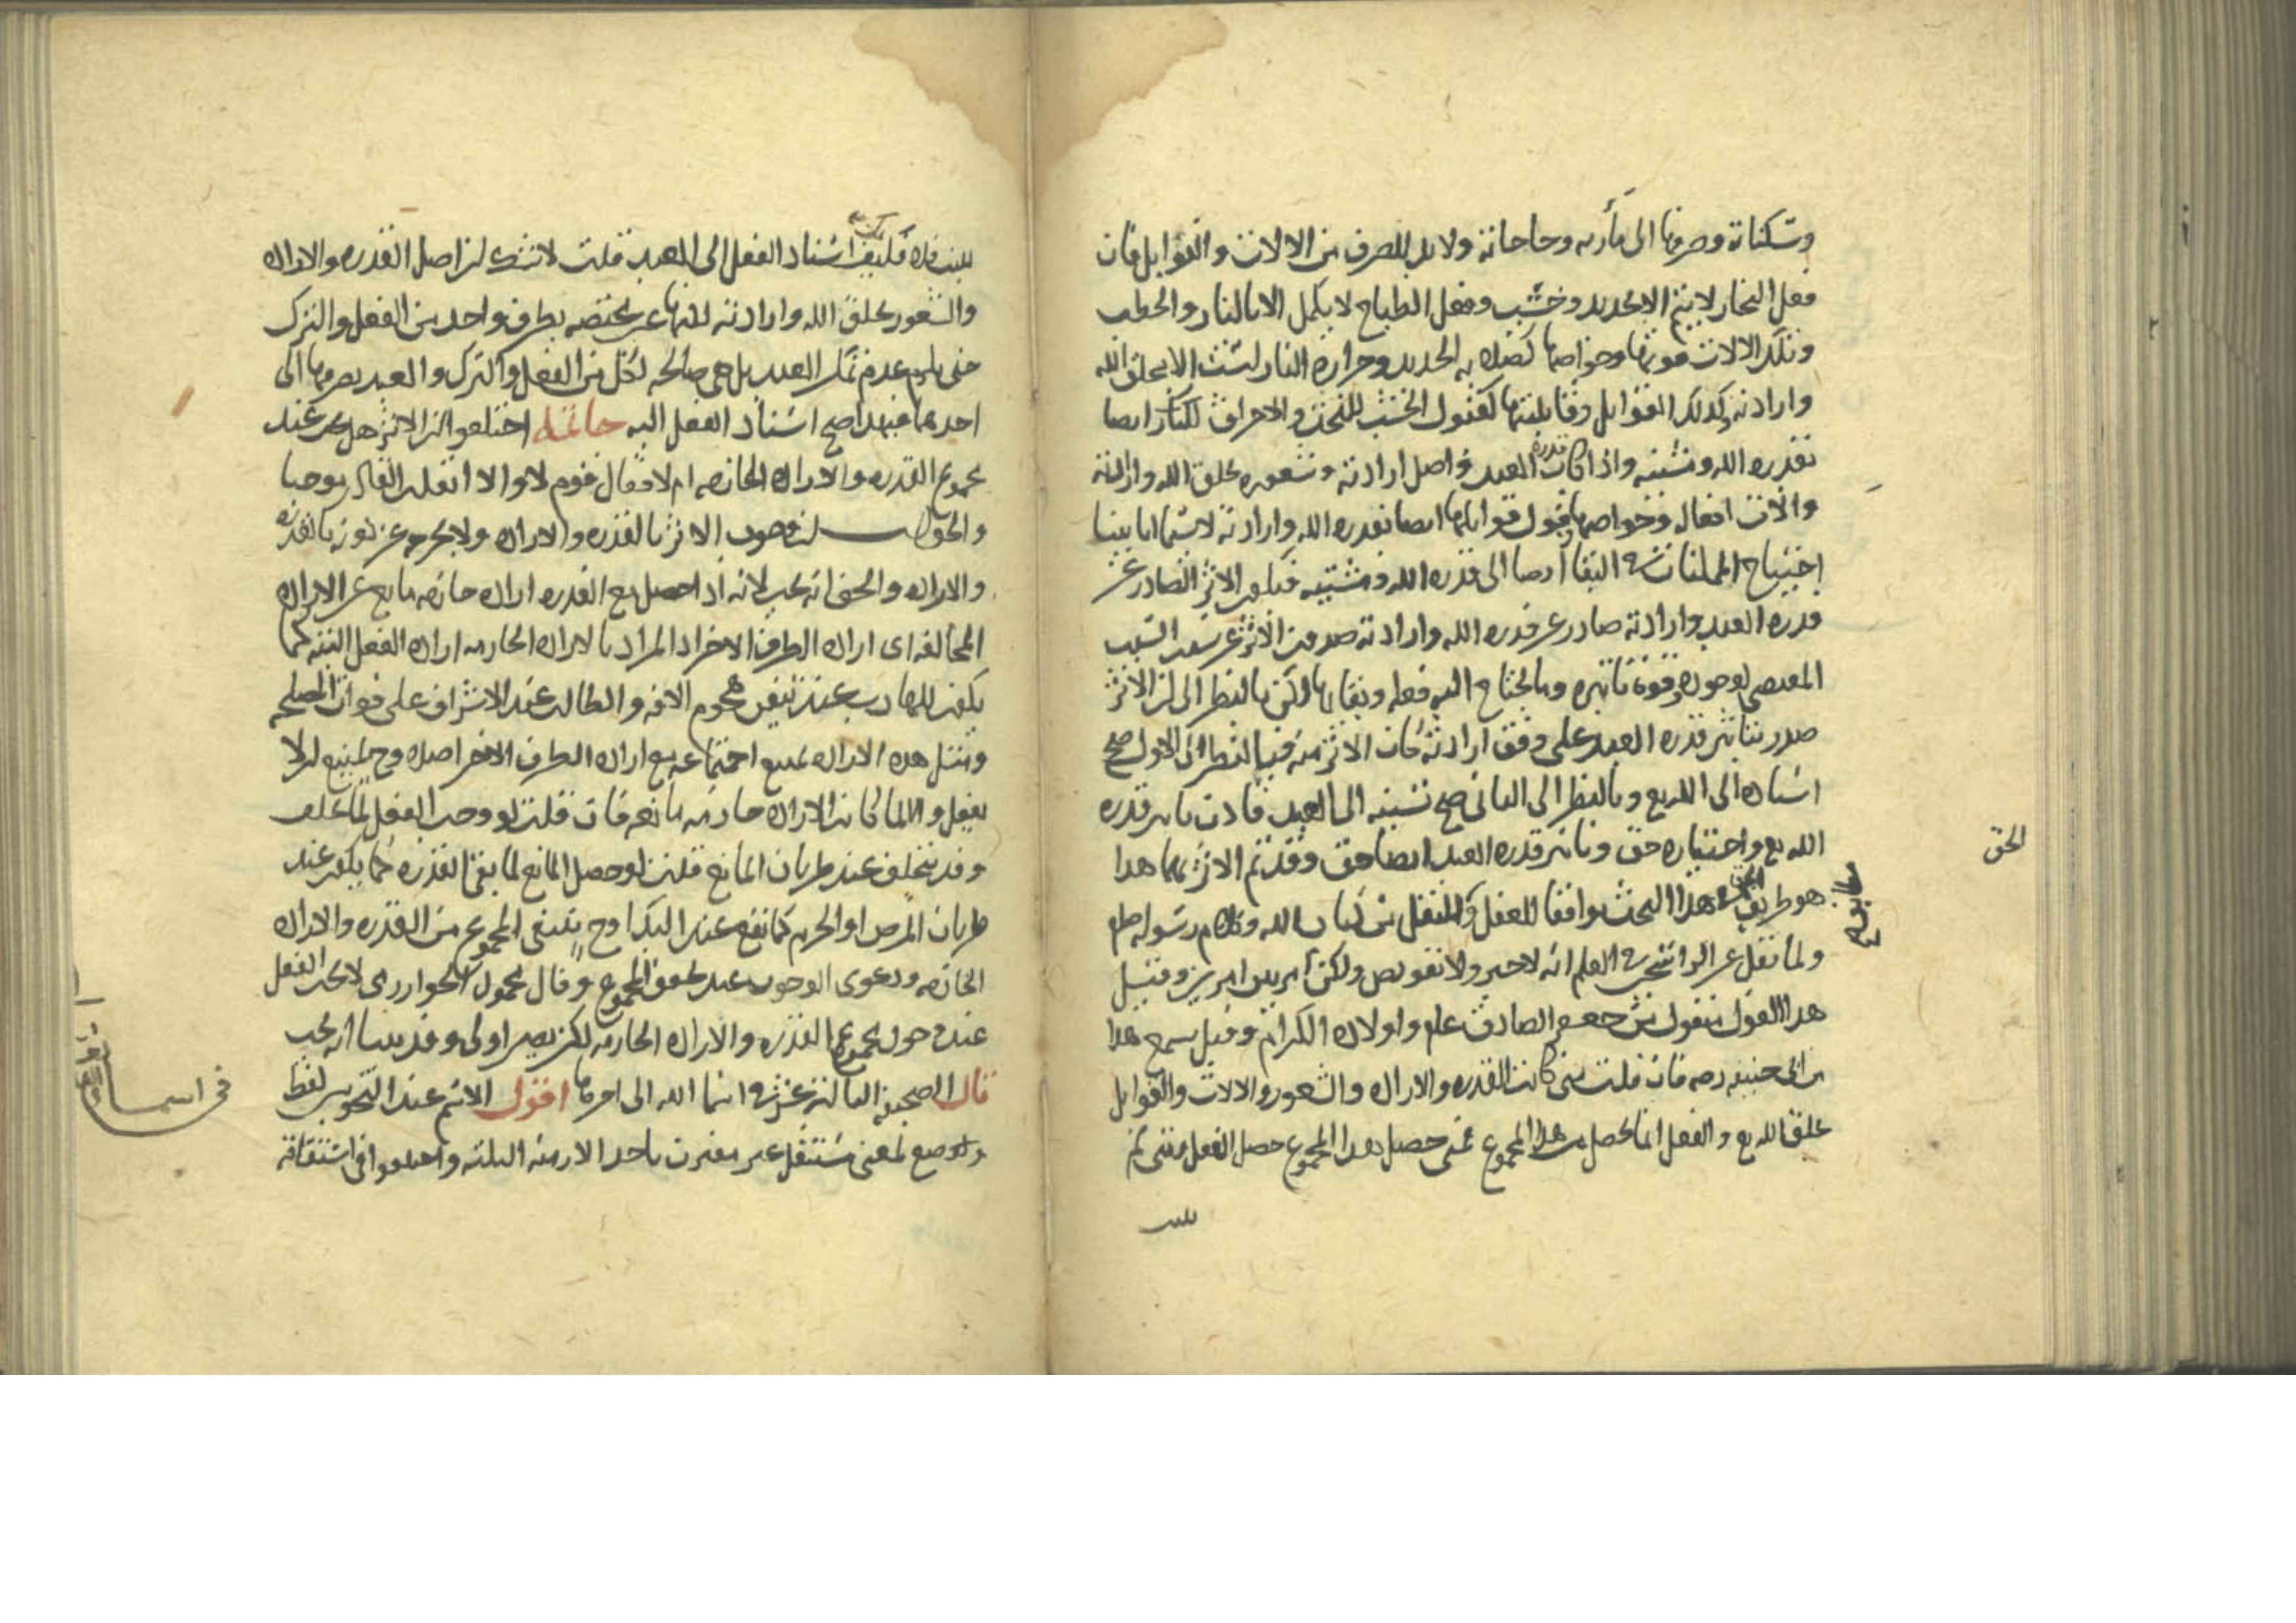 وسكناته وصرفها الى مآربه وحاجاته ولا بد للصرف من الالات والقوابل فان
فعل النجار لا يتم الا بحديد وخشب وفعل الطباخ لا يكمل الا بالنار والحطب
وتلك الالات قوتها وخواصها كصلابه الحديد وحرارة النار ليست الا بخلق الله
وارادته وكذلك القوابل وقابليتها كقبول الخشب للنحت والاحراق للنار ايضا
بقدره الله ومشيته واذا كان قدرة العبد واصل ارادته وشعوره بخلق الله وارادته
والات افعاله وخواصها وقبول قوابلها ايضا بقدره الله وارادته لا سيما اما بينا
احتياج الممكنات في البقا ايضا الى قدره الله ومشيته فيكون الاثر الصادر عن
قدره العبد وارادته صادر عن قدره الله وارادته صدور الاثر عن سبب السبب
المقتضى لوجوده وقوة تاثيره وما يحتاج اليه فعله وبقاوها لكن بالنظر الى ان الاثر
صدر بتاثير قدره العبد على وفق ارادته كان الاثر منه فبالنظر الى الاول صح
اسناده الى الله تع وبالنظر الى الثانى صح نسبته الى العبد فاذن تاثير قدره
الله تع واختياره حق وتاثير قدره العبد ايضا حق وقد تم الاثر بهما هذا
هو طريق الحق في هذا البحث موافقا للعقل والنقل من كتاب الله وكلام رسوله صلعم
ولما نقل عن الراسخين في العلم انه لا جبر ولا تفويض ولكن امر بين امرين وقيل
هذا القول منقول من جعفر الصادق علم واولاده الكرام وقيل سمع هذا
من ابى حنيفه رحه فان قلت متى كانت القدره والاراده والشعور والالات والقوابل
بخلق الله تع والفعل انما يحصل من هذا المجموع فمتى حصل هذا المجموع حصل الفعل ومتى لم
الحق
اسناد الفعل الى العبد قلت لا شك ان اصل القدره والاراده
والشعور بخلق الله وارادته لكنها غير مختصه بطرف واحد من الفعل والترك
حتى يلزم عدم تمكن العبد بل هى صالحه لكل من الفعل والترك والعبد يصرفها الى
احدهما فبهذا صح اسناد الفعل اليه خاتمه اختلفوا ان الاثر هل يجب عند
مجموع القدره والاراده الجازمه ام لا فقال قوم لا والا انقلب القادر موجبا
والجواب ان وجوب الاثر بالقدره والاراده ولا يخرجه عن كونه بالقدره
والاراده والحق انه يجب لانه اذا حصل مع القدره اراده جازمه مانع عن الاراده
المخالفه اى اراده الطرف الاخر اذ المراد بالاراده الجازمه اراده الفعل البته كما
يكون للهارب عند تيقن هجوم الافه والطالب عند الاشراف على فوات المصلحه
ومثل هذه الاراده يمنع اجتماعه مع اراده الطرف الاخر اصلا وح يمتنع ان لا
يفعل والا لما كانت الاراده جازمه مانعه فان قلت لو وجب الفعل لما تخلف
وقد يتخلف عند طريان المانع قلت لو حصل المانع لما بقى القدره كما يكون عند
طريان المرض او الجزم كما يقع عند البدا وح ينتفى المجموع من القدره والاراده
الجازمه ودعوى الوجوب عند تحقق المجموع وقال محمود الخوارزمى لا يجب الفعل
عند حصول مجموع القدره والاراده الجازمه لكن يصير اولى وقد بينا انه يجب
قال الصحيفه الثالثه عشر في اسما الله الى اخرها اقول الاسم عند النحويين لفظ
وضع لمعنى مستقل غير مقترن باحد الازمنه الثلثه واختلفوا فى اشتقاقه
فى اسما